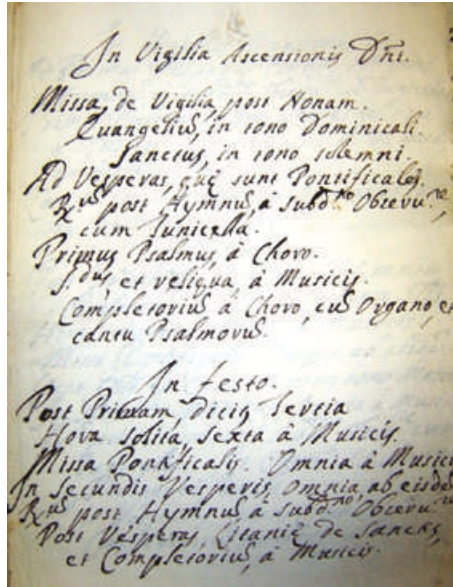 In Vigilia Ascensionis Dñi.
Missa, de Vigilia, post Nonam.
Euangeliũ, in tono Dominicali.
Sanctus, in tono solemni.
Ad Vesperas, quę sunt Pontificales.
post Hymnũ, à Subd.no
cum Tunicella.
Primus Psalmus, à Choro.
S.dus, et reliqua, à Musicis.
Completoriũ à Choro, cũ Organo, et
cantu Psalmorũ.
In Festo.
Post Primam, dicit Tertia
Hora solita, Sexta à Musicis.
Missa Pontificalis. Omnia à Musici
In Secundis Vesperis, Omnia, ab eisdẽ
post Hymnũ à Subd.no
Post Vesperas, Litanię de Sanctis,
et Completoriũ, à Musicis.